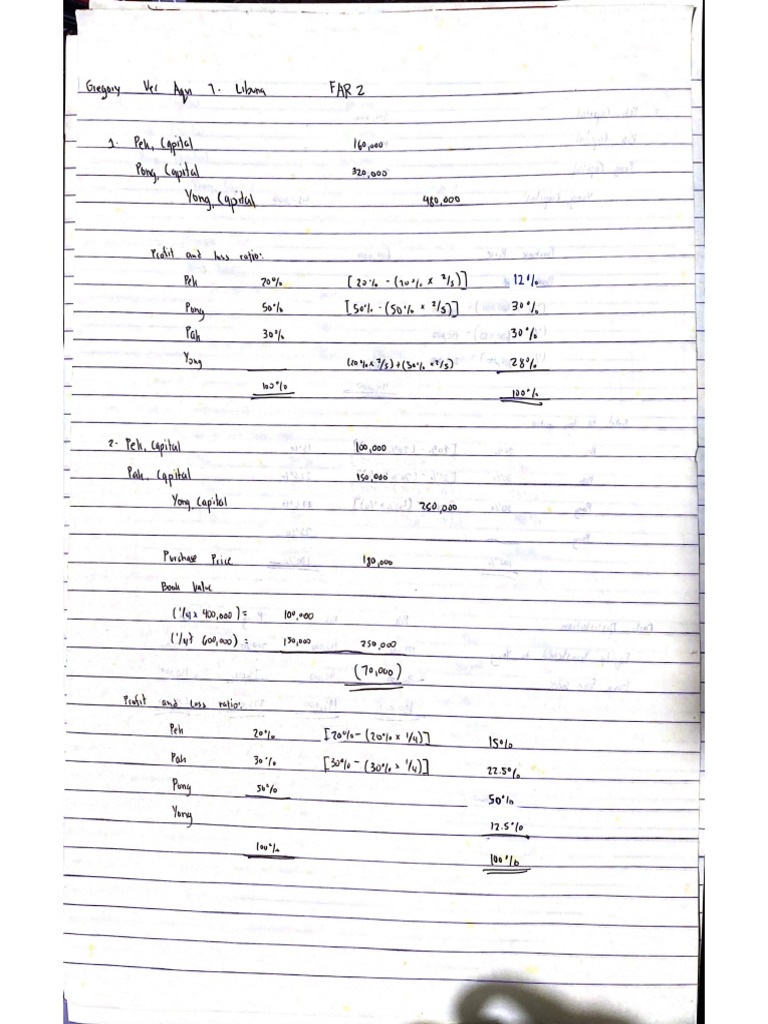 Gregory Ver Aqui 7. Libuna FAR 2
1. Peh, Capital 160,000
Pong, Capital 320,000
Yong, Capital 480,000
Profit and loss ratio:
Peh 20% [20% - (20% x 2/5)] 12%
Pong 50% [50% - (50% x 2/5)] 30%
Pah 30% 30%
Yong (20% x 2/5) + (50% x 2/5) 28%
100% 100%
2. Peh, Capital 100,000
Pah, Capital 150,000
Yong, Capital 250,000
Purchase Price 180,000
Book Value
(1/4 x 400,000) = 100,000
(1/4 x 600,000) = 150,000 250,000
(70,000)
Profit and Loss ratio:
Peh 20% [20% - (20% x 1/4)] 15%
Pah 30% [30% - (30% x 1/4)] 22.5%
Pong 50% 50%
Yong 12.5%
100% 100%